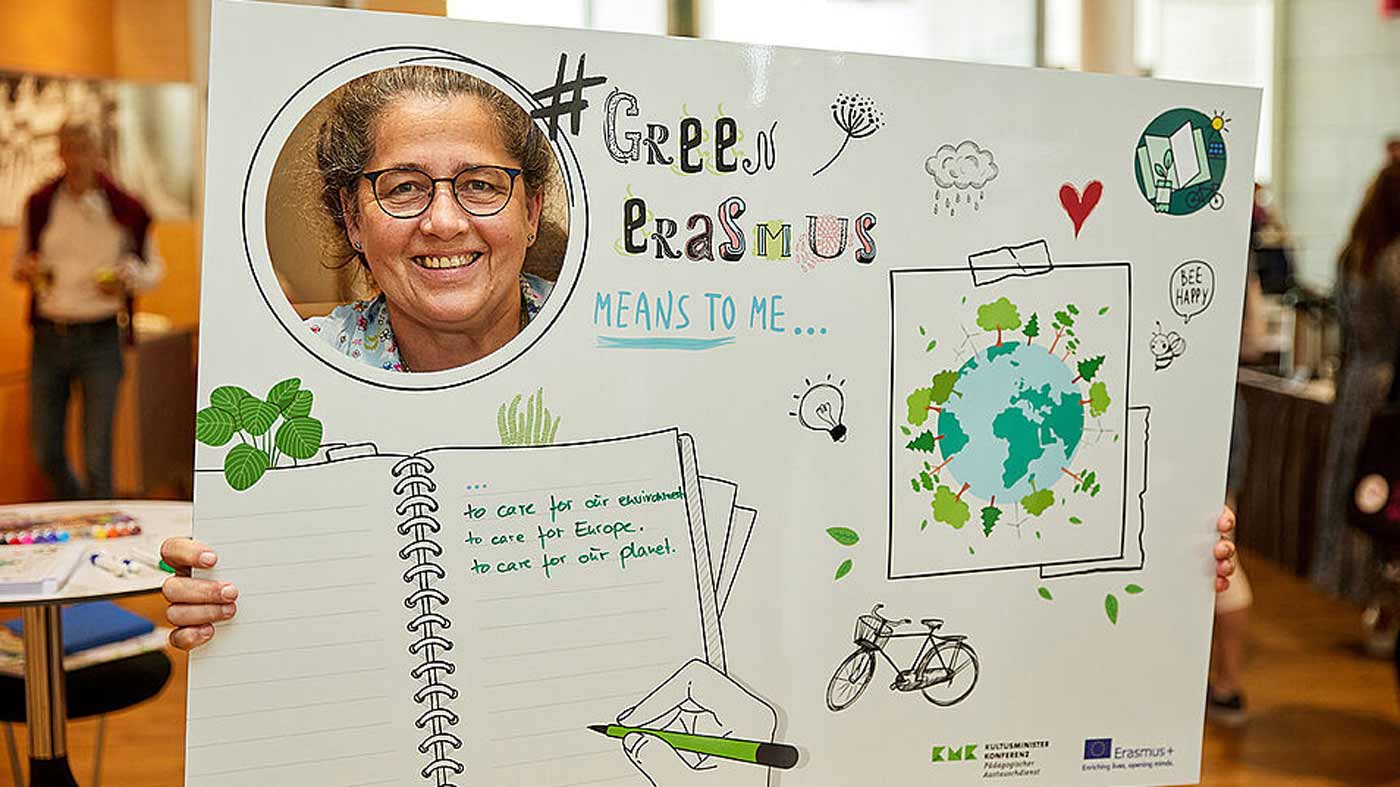 #GREEN
ERASMUS
MEANS TO ME...
BEE
HAPPY
...
to care for our environment
to care for Europe.
to care for our planet.
KMK KULTUSMINISTER
KONFERENZ
Pädagogischer
Austauschdienst
Erasmus+
Enriching lives, opening minds.